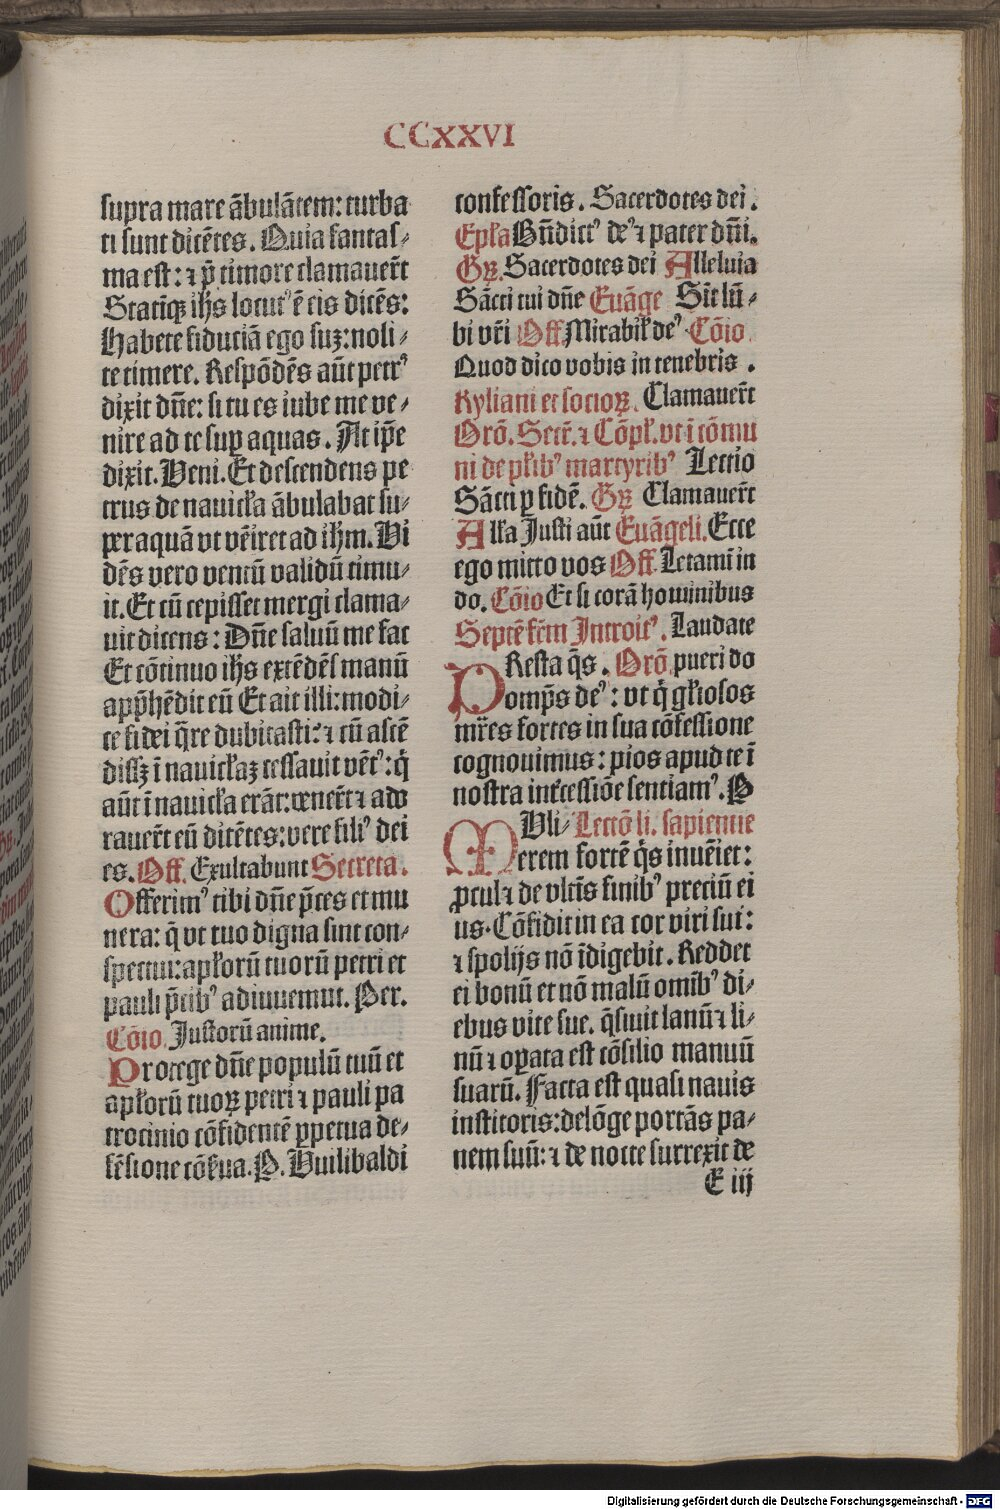 CCXXVI
supra mare ãbulãtem: turba
ti sunt dicẽtes. Quia fantas⸗
ma est: ⁊ p̃ timore clamauer̃t
Statiꝙ ihs locutꝰ ẽ eis dicẽs:
Habete fiduciã ego suꝫ: noli⸗
te timere. Respõdẽs aũt petrꝰ
dixit dñe: si tu es iube me ve⸗
nire ad te suꝑ aquas. At ip̃e
dixit. Veni. Et descendens pe
trus de nauicła ãbulabat su⸗
per aquã vt vẽiret ad ihm. Vi
dẽs vero ventũ validũ timu⸗
it. Et cũ cepisset mergi clama⸗
uit dicens: Dñe saluũ me fac
Et cõtinuo ihs extẽdẽs manũ
app̃hẽdit eũ Et ait illi: modi⸗
ce fidei q̃re dubitasti: ⁊ cũ ascẽ
dissꝫ ĩ nauicłaꝫ cessauit vẽtꝰ: q̃
aũt ĩ nauicła erãt: vener̃t ⁊ ado
rauer̃t eũ dicẽtes: vere filiꝰ dei
es. Off. Exultabunt Secreta.
Offerimꝰ tibi dñe p̃ces et mu
nera: q̃ vt tuo digna sint con⸗
spectui: apłorũ tuorũ petri et
pauli p̃cibꝰ adiuuemur. Per.
Cõio. Justorũ anime.
Protege dñe populũ tuũ et
apłorũ tuoꝝ petri ⁊ pauli pa
trocinio cõfidentẽ ꝑpetua de⸗
fẽsione cõẽua. P. Vuilibaldi
confessoris. Sacerdotes dei.
Epła Bñdictꝰ deꝰ ⁊ pater dñi.
Gꝝ. Sacerdotes dei Alleluia
Sãcti tui dñe Euãge Sĩt lũ⸗
bi vr̃i Off Mirabił deꝰ Cõio.
Quod dico vobis in tenebris.
Kyliani et socioꝝ. Clamauer̃t
Orõ. Secr̃. ⁊ Cõpł. vt ĩ cõmu
ni de płibꝰ martyribꝰ Lectio
Sãcti ꝑ fidẽ. Gꝝ Clamauer̃t
Alła Justi aũt Euãgeli. Ecce
ego mitto vos Off. Letamĩ in
do. Cõio Et si corã hominibus
Septẽ fr̃m Introitꝰ. Laudate
PResta q̃s. Orõ. pueri do
omp̃s deꝰ: vt q̃ głiosos
mr̃es fortes in sua cõfessione
cognouimus: pios apud te ĩ
nostra intcessiõe sentiamꝰ. P
MVli⸗ Lectõ li. sapientie
erem fortẽ q̃s inuẽiet:
ꝓcul ⁊ de vltĩs finibꝰ preciũ ei
us. Cõfidit in ea cor viri sui:
⁊ spolijs nõ ĩdigebit. Reddet
ei bonũ et nõ malũ omĩbꝰ di⸗
ebus vite sue. q̃siuit lanũ ⁊ li⸗
nũ ⁊ oꝑata est cõsilio manuũ
suarũ. Facta est quasi nauis
institoris: de lõge portãs pa⸗
nem suũ: ⁊ de nocte surrexit de
E iij
Digitalisierung gefördert durch die Deutsche Forschungsgemeinschaft - DFG